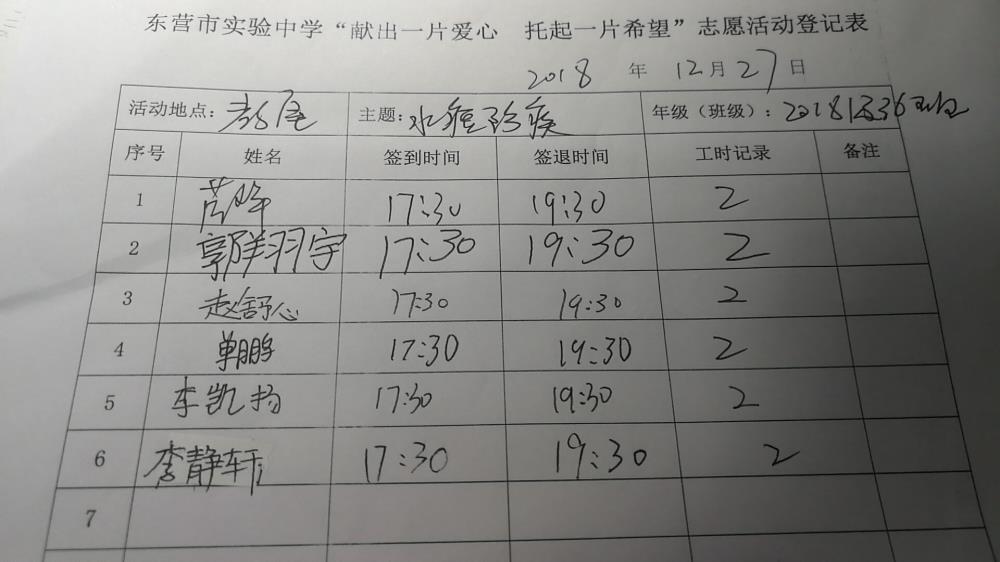 东营市实验中学“献出一片爱心 托起一片希望”志愿活动登记表
2018 年 12月 27日
活动地点： 主题： 年级（班级）：
序号 姓名 签到时间 签退时间 工时记录 备注
1 17:30 19:30 2
2 郭羊羽宇 17:30 19:30 2
3 赵舒心 17:30 19:30 2
4 单鹏 17:30 19:30 2
5 李凯扬 17:30 19:30 2
6 李静轩 17:30 19:30 2
7